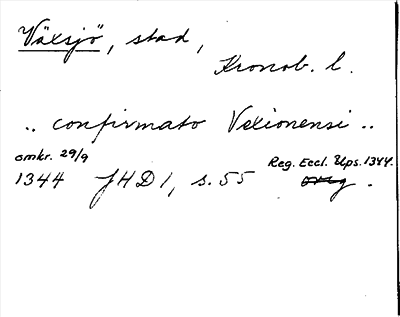 Växsjö, stad,
Kronob. l.
.. confirmato Vexionensi ..
omkr. 29/9
1344 JHD 1, s. 55
Reg. Eccl. Ups. 1344.
orig.